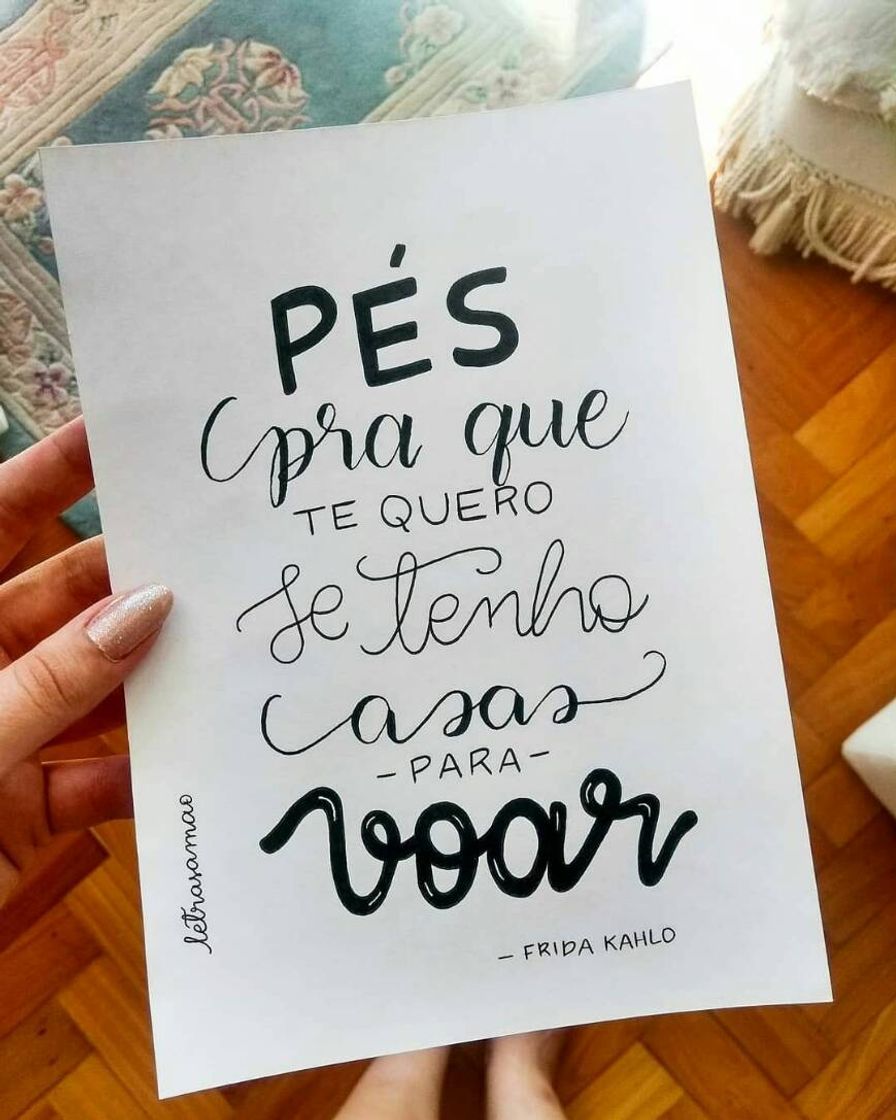 PÉS
pra que
TE QUERO
se tenho
asas
- PARA -
voar
- FRIDA KAHLO
letrasamao